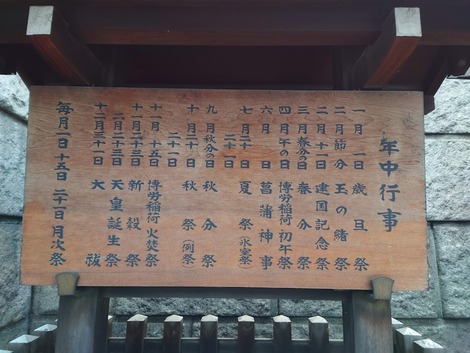 年中行事
一月一日 歳旦祭
二月節分 玉の緒祭
二月十一日 建国記念祭
三月春分の日 春分祭
四月午の日 博労稲荷初午祭
六月 日 菖蒲神事
七月二十日 二十一日 夏祭(氷室祭)
九月秋分の日 秋分祭
十月二十日 二十一日 秋祭(例祭)
十一月十五日 博労稲荷火焚祭
十一月二十三日 新穀祭
二月二十三日 天皇誕生祭
十二月三十一日 大祓
毎月一日 十五日 二十一日 月次祭